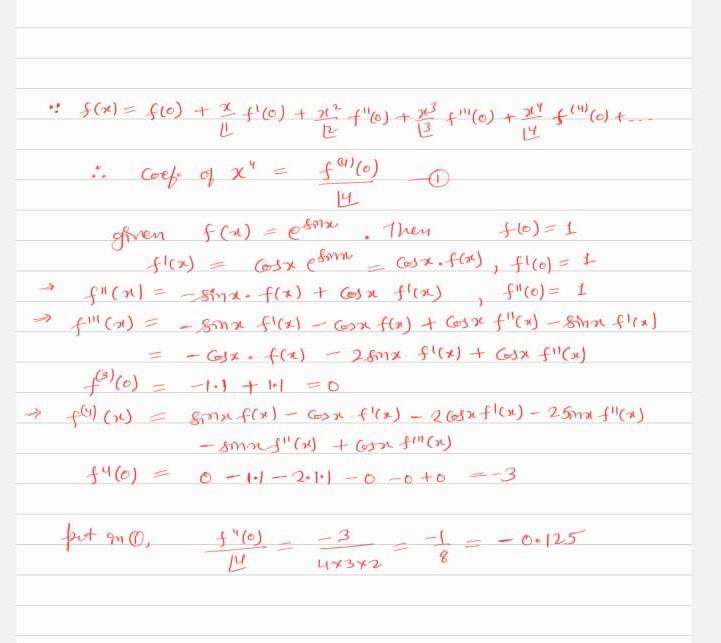 ∵ f(x) = f(0) + x/⌊1 f'(0) + x²/⌊2 f''(0) + x³/⌊3 f'''(0) + x⁴/⌊4 f⁽⁴⁾(0) + ...
∴ Coef. of x⁴ = f⁽⁴⁾(0)/⌊4 —①
given f(x) = e^sinx . Then f(0) = 1
f'(x) = cosx e^sinx = cosx . f(x) , f'(0) = 1
→ f''(x) = - sinx . f(x) + cosx f'(x) , f''(0) = 1
⇒ f'''(x) = - sinx f'(x) - cosx f(x) + cosx f''(x) - sinx f'(x)
= - cosx . f(x) - 2sinx f'(x) + cosx f''(x)
f⁽³⁾(0) = -1.1 + 1.1 = 0
→ f⁽⁴⁾(x) = sinx f(x) - cosx . f'(x) - 2cosx f'(x) - 2sinx f''(x)
- sinx f''(x) + cosx f'''(x)
f⁴(0) = 0 - 1.1 - 2.1.1 - 0 - 0 + 0 = -3
put in ①, f⁴(0)/⌊4 = -3/4×3×2 = -1/8 = -0.125